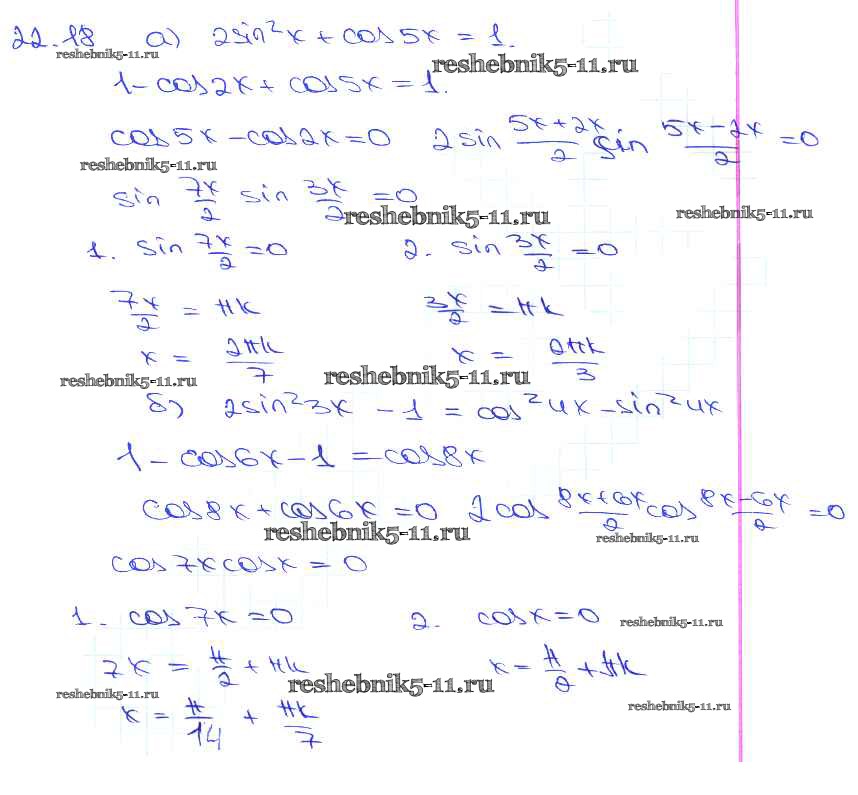 22.18 а) 2sin²x + cos5x = 1.
reshebnik5-11.ru reshebnik5-11.ru
1 - cos2x + cos5x = 1.
cos5x - cos2x = 0 2sin (5x+2x)/2 sin (5x-2x)/2 = 0
reshebnik5-11.ru
sin 7x/2 sin 3x/2 = 0
reshebnik5-11.ru reshebnik5-11.ru
1. sin 7x/2 = 0 2. sin 3x/2 = 0
7x/2 = πk 3x/2 = πk
x = 2πk/7 x = 2πk/3
reshebnik5-11.ru reshebnik5-11.ru
б) 2sin²3x - 1 = cos²4x - sin²4x
1 - cos6x - 1 = cos8x
cos8x + cos6x = 0 2cos (8x+6x)/2 cos (8x-6x)/2 = 0
reshebnik5-11.ru reshebnik5-11.ru
cos7x cosx = 0
1. cos7x = 0 2. cosx = 0 reshebnik5-11.ru
7x = π/2 + πk x = π/2 + πk
reshebnik5-11.ru reshebnik5-11.ru reshebnik5-11.ru
x = π/14 + πk/7